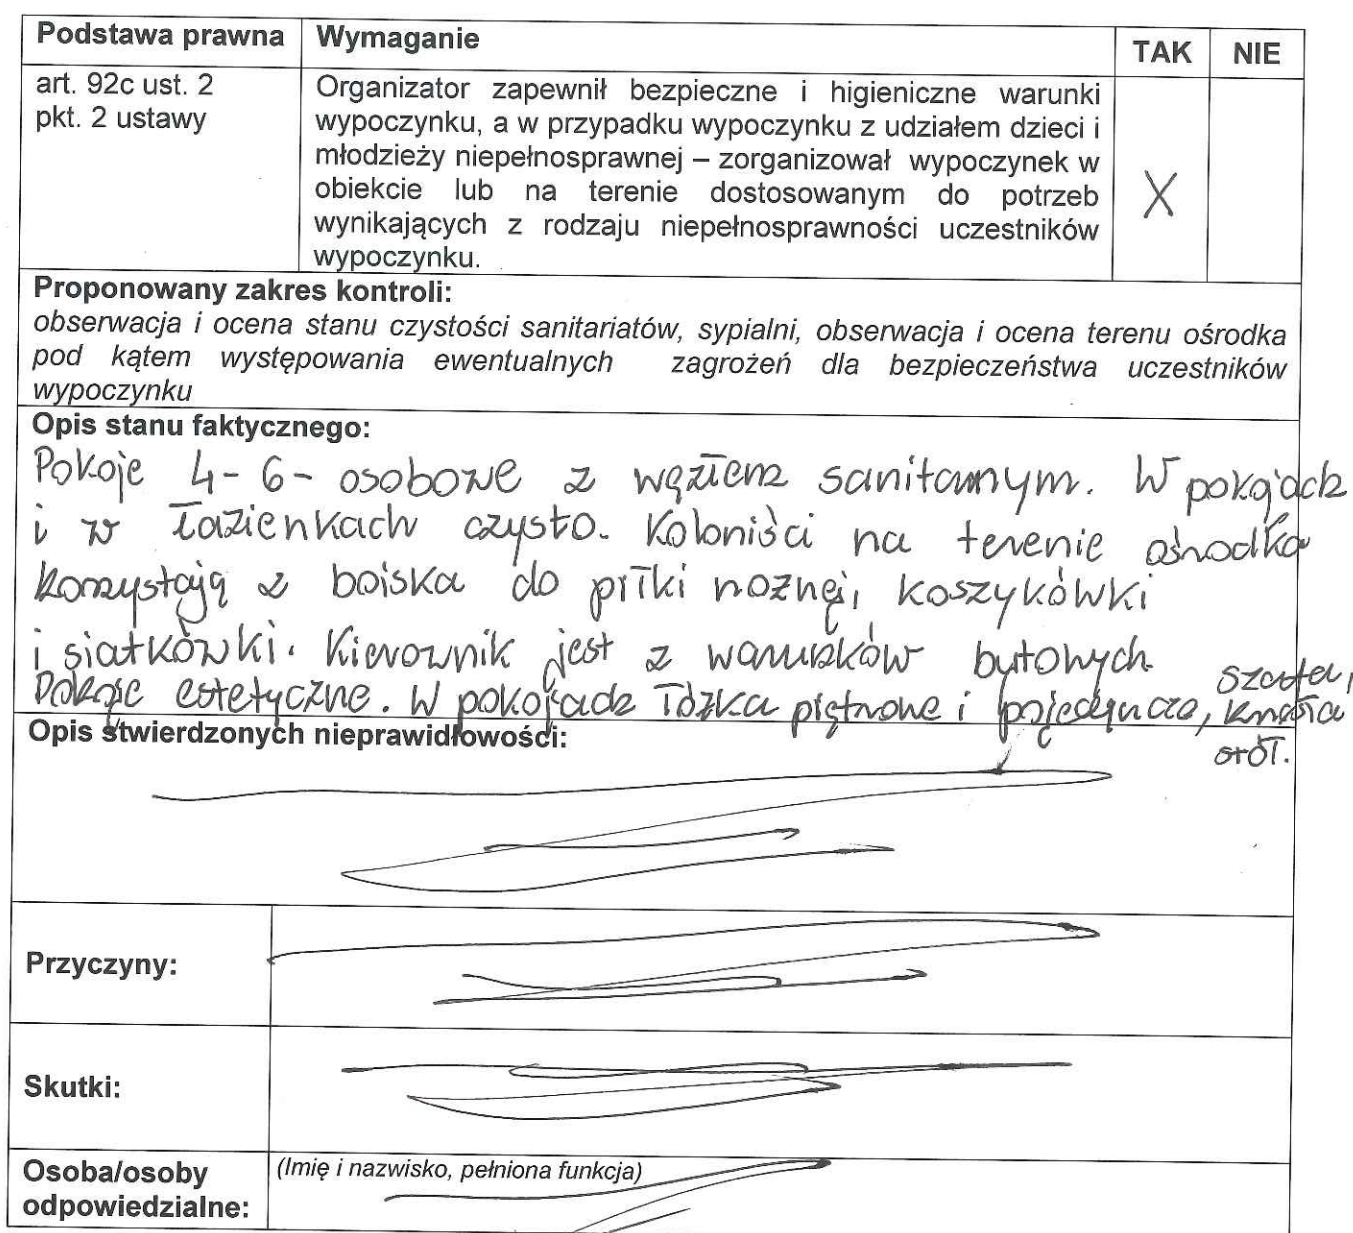 Podstawa prawna Wymaganie TAK NIE
art. 92c ust. 2
pkt. 2 ustawy
Organizator zapewnił bezpieczne i higieniczne warunki
wypoczynku, a w przypadku wypoczynku z udziałem dzieci i
młodzieży niepełnosprawnej – zorganizował wypoczynek w
obiekcie lub na terenie dostosowanym do potrzeb
wynikających z rodzaju niepełnosprawności uczestników
wypoczynku.
X
Proponowany zakres kontroli:
obserwacja i ocena stanu czystości sanitariatów, sypialni, obserwacja i ocena terenu ośrodka
pod kątem występowania ewentualnych zagrożeń dla bezpieczeństwa uczestników
wypoczynku
Opis stanu faktycznego:
Pokoje 4-6-osobowe z węzłem sanitarnym. W pokojach
i w łazienkach czysto. Koloniści na terenie ośrodka
korzystają z boiska do piłki nożnej, koszykówki
i siatkówki. Kierownik jest z warunków bytowych
Pokoje estetyczne. W pokojach łóżka piętrowe i pojedyncze, szafa,
stół.
Opis stwierdzonych nieprawidłowości:
Przyczyny:
Skutki:
Osoba/osoby
odpowiedzialne:
(Imię i nazwisko, pełniona funkcja)